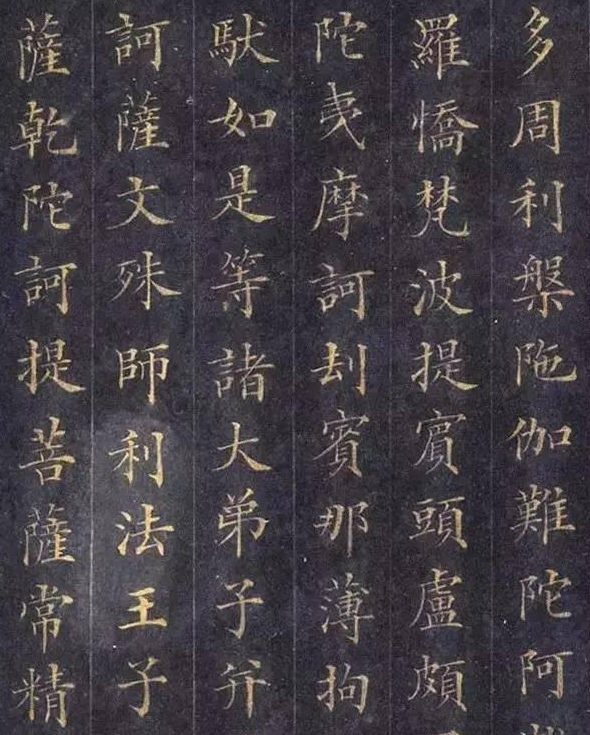 多周利槃陁伽難陀阿
羅憍梵波提賔頭盧頗
陀夷摩訶刦賓那薄拘
馱如是等諸大弟子并
訶薩文殊師利法王子
薩乾陀訶提菩薩常精